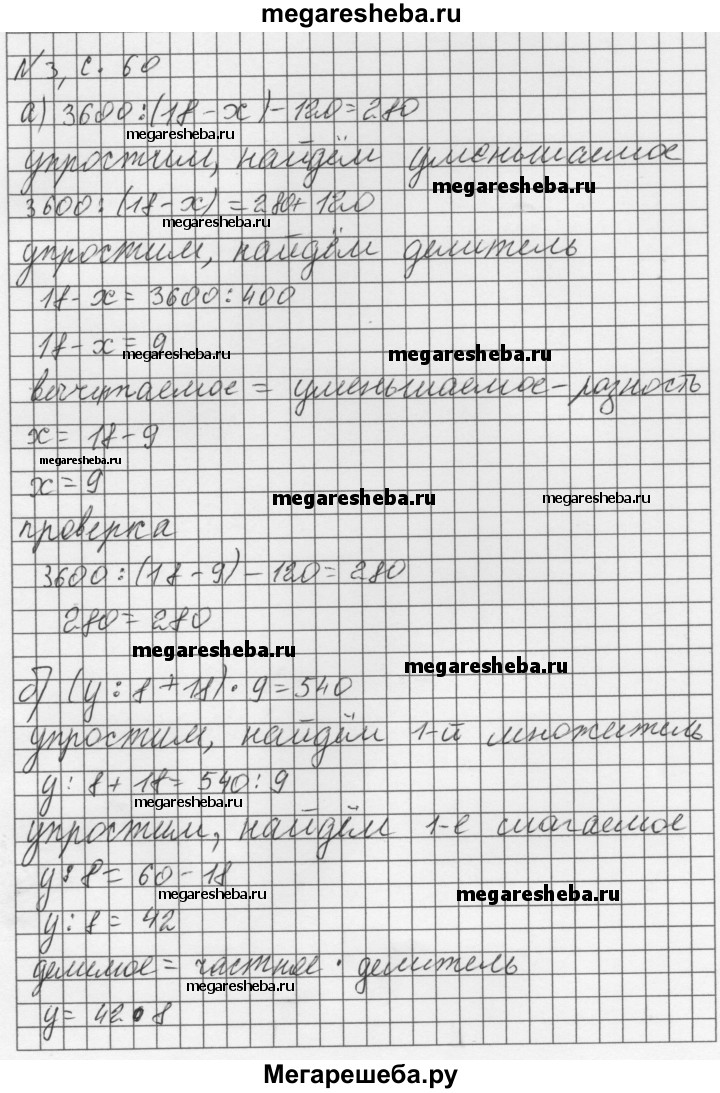 megaresheba.ru
N 3, с. 60
а) 3600 : (18 - x) - 120 = 280
megaresheba.ru
упростим, найдём уменьшаемое
megaresheba.ru
3600 : (18 - x) = 280 + 120
megaresheba.ru
упростим, найдём делитель
18 - x = 3600 : 400
18 - x = 9
megaresheba.ru megaresheba.ru
вычитаемое = уменьшаемое - разность
x = 18 - 9
megaresheba.ru
x = 9
megaresheba.ru megaresheba.ru
проверка
3600 : (18 - 9) - 120 = 280
280 = 280
megaresheba.ru megaresheba.ru
б) (y : 8 + 18) · 9 = 540
упростим, найдём 1-й множитель
y : 8 + 18 = 540 : 9
megaresheba.ru
упростим, найдём 1-е слагаемое
y : 8 = 60 - 18
megaresheba.ru megaresheba.ru
y : 8 = 42
делимое = частное · делитель
megaresheba.ru
y = 42 · 8
Мегарешеба.ру